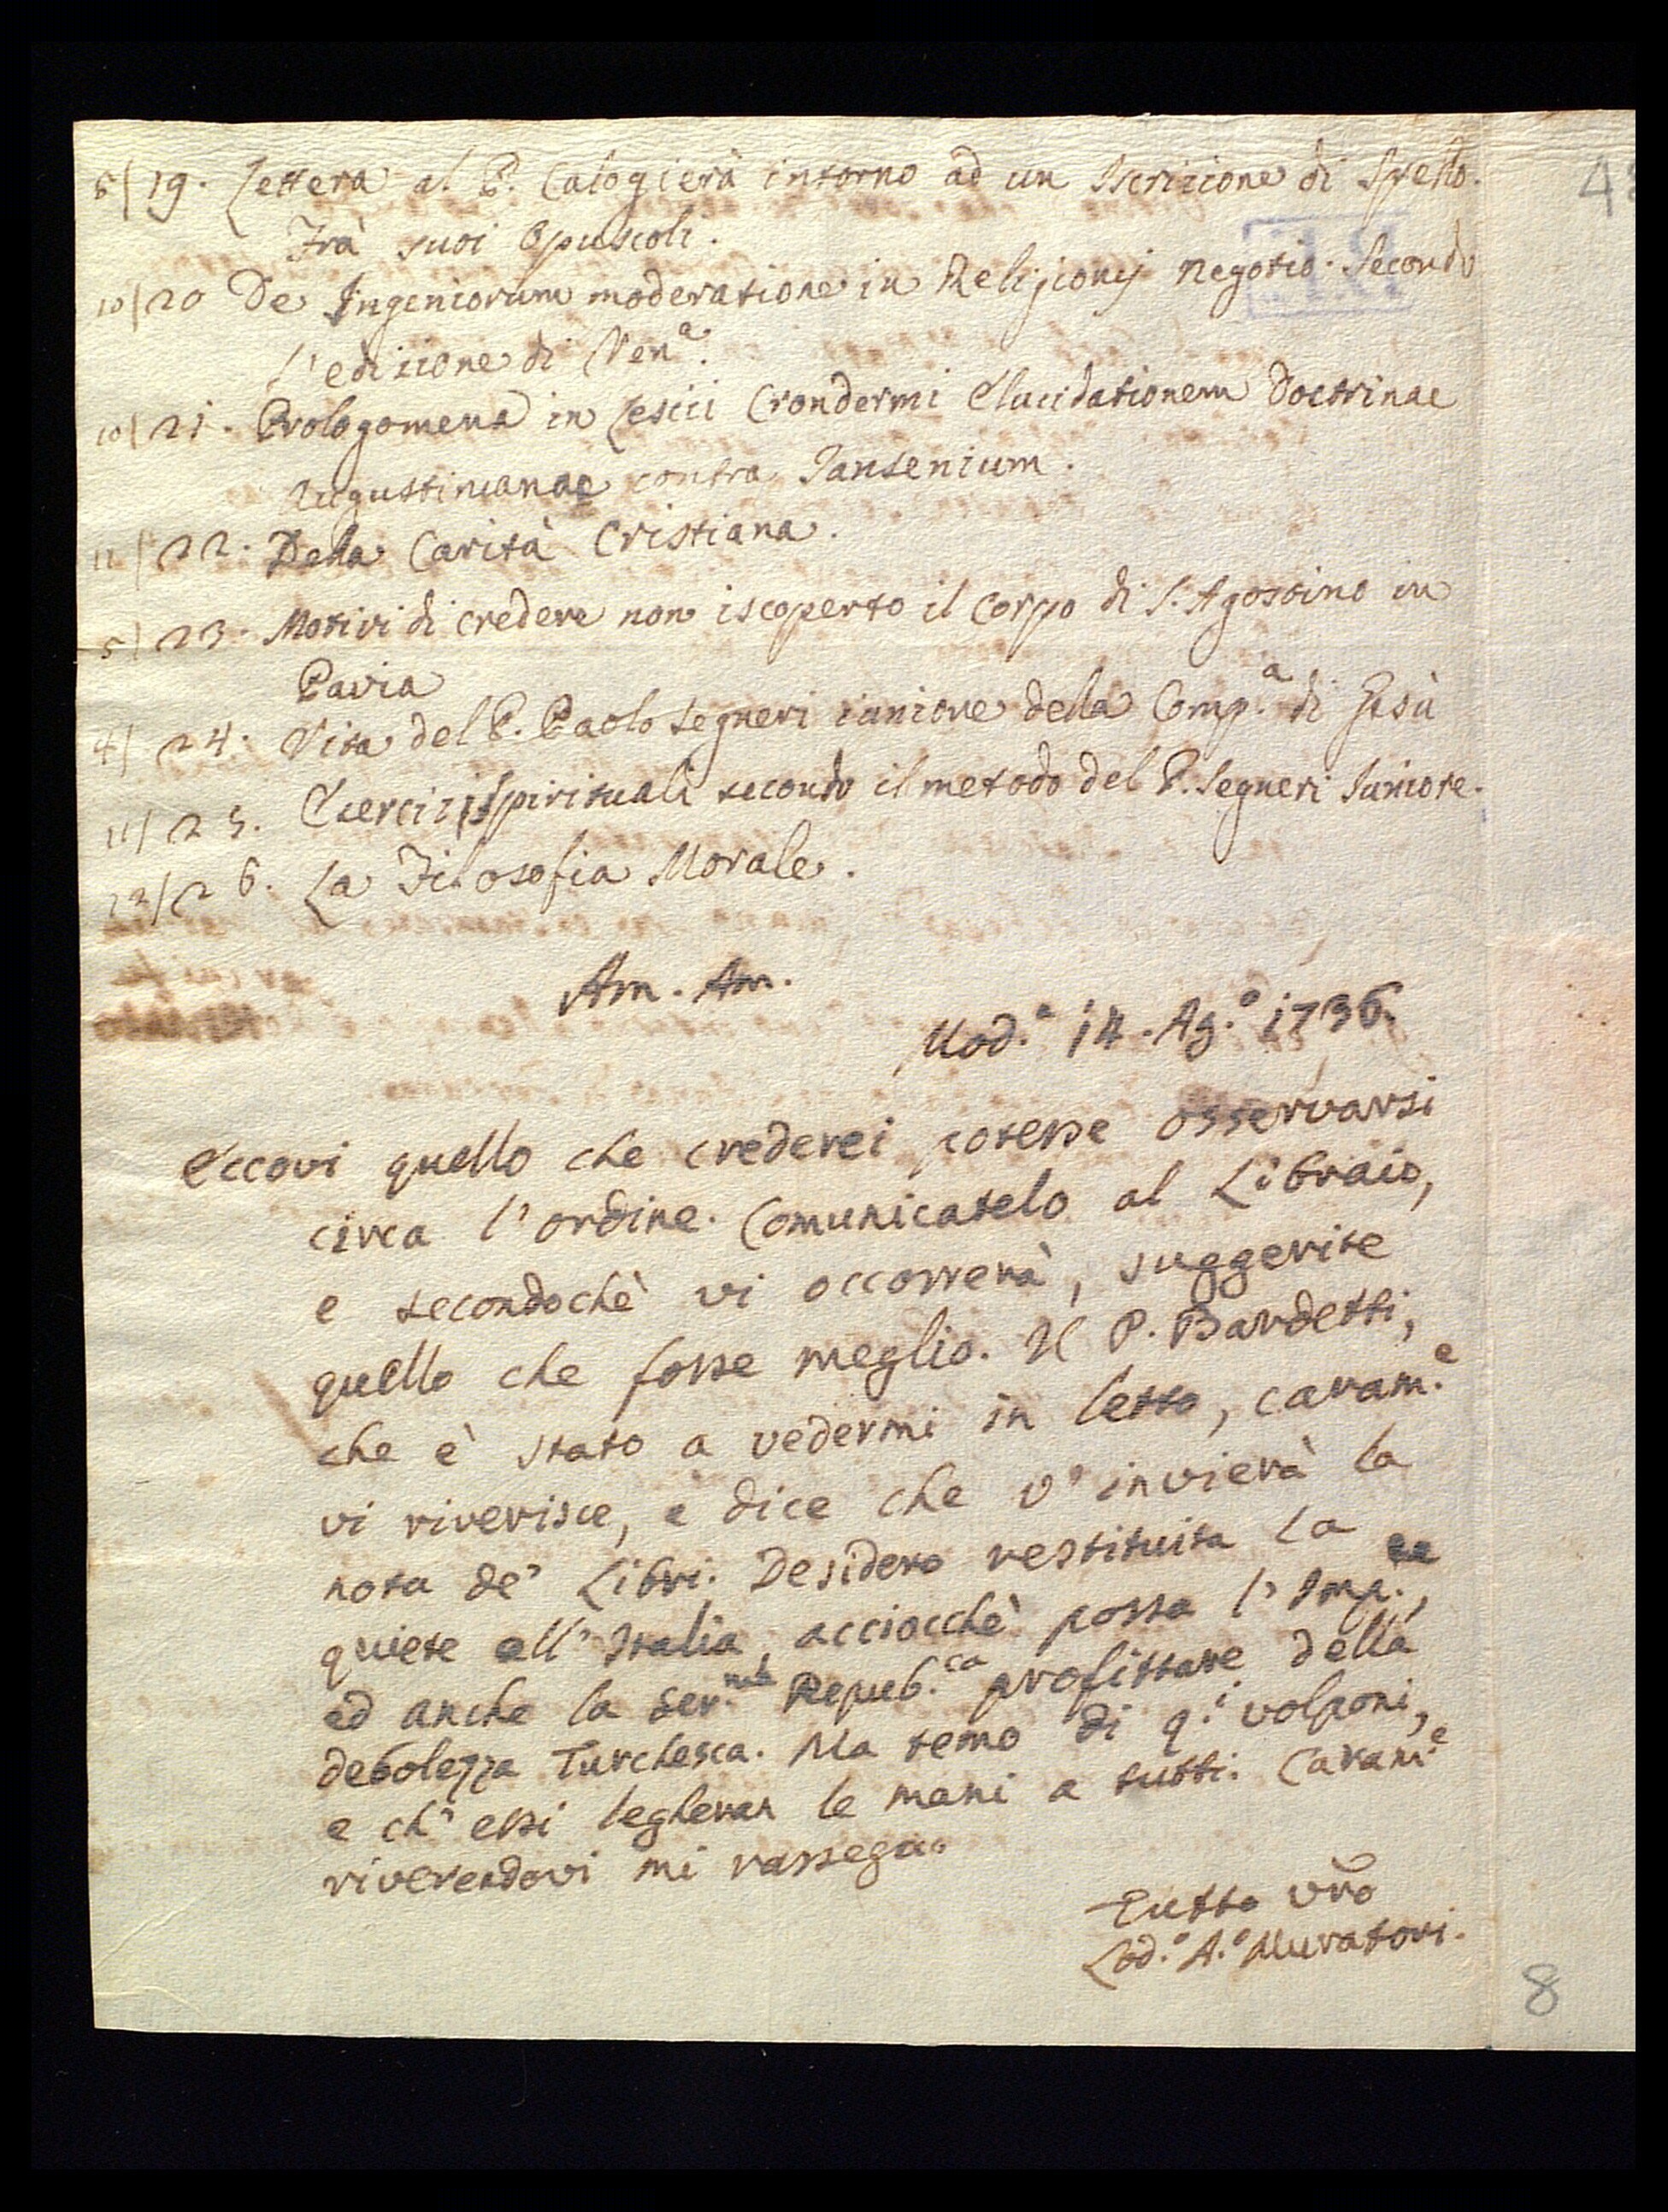 8/19. Lettera al P. Calogierà intorno ad un Iscrizione di Spello.
Frà suoi Opuscoli.
10/20 De Ingeniorum moderatione in Religionis negotio. Secondo
l'edizione di Ven.a
10/21. Prologomena in Lescii Crondermi Elucidationem Doctrinae
Augustinianae contra Jansenium.
11/22. Della Carità Cristiana.
5/23. Motivi di credere non iscoperto il Corpo di S. Agostino in
Pavia
4/24. Vita del P. Paolo Segneri iuniore della Comp.a di Gesù
11/25. Esercizi Spirituali secondo il metodo del P. Segneri Juniore.
12/26. La Filosofia Morale.
Am. Am.
Mod.a 14. Ag.o 1736.
Eccovi quello che crederei potesse osservarsi
circa l'ordine. Comunicatelo al Libraio,
e secondochè vi occorrerà, suggerite
quello che fosse meglio. Il P. Bardetti,
che è stato a vedermi in letto, caram.e
vi riverisce, e dice che v'invierà la
nota de' Libri. Desidero restituita la
quiete all'Italia, acciocchè possa l'Imp.re,
ed anche la Ser.ma Repub.ca profittare della
debolezza Turchesca. Ma temo di q.i volponi,
e ch'essi legheran le mani a tutti. Caram.e
riverendovi mi rassegno
Tutto vro
Lod.o A.o Muratori.
8